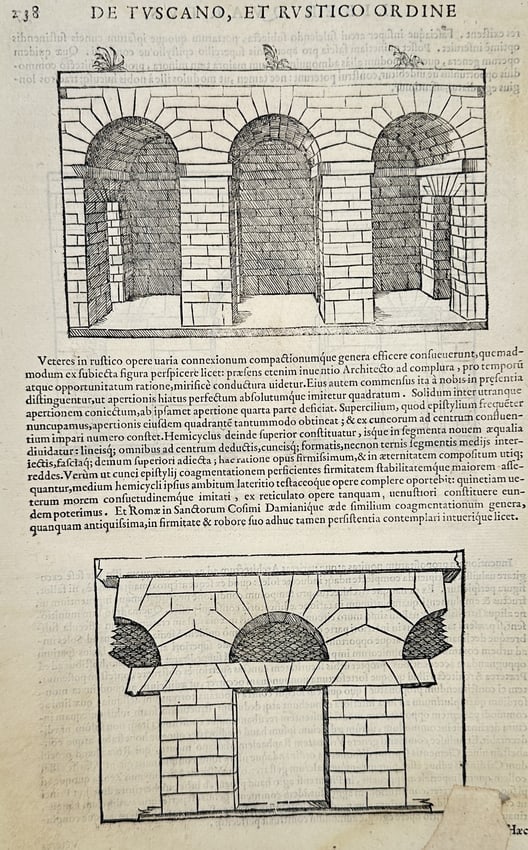 238 DE TVSCANO, ET RVSTICO ORDINE
Veteres in rustico opere uaria connexionum compactionumque genera efficere consueuerunt, quemad-
modum ex subiecta figura perspicere licet: præsens etenim inuentio Architecto ad complura, pro temporū
atque opportunitatum ratione, mirificè conductura uidetur. Eius autem commensus ita à nobis in præsentia
distinguentur, ut apertionis hiatus perfectum absolutumque imitetur quadratum. Solidum inter utranque
apertionem coniectum, ab ipsamet apertione quarta parte deficiat. Supercilium, quod epistylium frequēter
nuncupamus, apertionis eiusdem quadrantē tantummodo obtineat; & ex cuneorum ad centrum confluen-
tium impari numero constet. Hemicyclus deinde superior constituatur, isque in segmenta nouem æqualia
diuidatur: lineisq; omnibus ad centrum deductis, cuneisq; formatis, necnon ternis segmentis medijs inter-
iectis, fasciaq; demum superiori adiecta; hac ratione opus firmissimum, & in æternitatem compositum utiq;
reddes. Verùm ut cunei epistylij coagmentationem perficientes firmitatem stabilitatemque maiorem asse-
quantur, medium hemicycli ipsius ambitum lateritio testaceoque opere complere oportebit: quinetiam ue-
terum morem consuetudinemque imitati, ex reticulato opere tanquam, uenustiori constituere eun-
dem poterimus. Et Romæ in Sanctorum Cosimi Damianique æde similium coagmentationum genera,
quanquam antiquissima, in firmitate & robore suo adhuc tamen persistentia contemplari intuerique licet.
Hæc